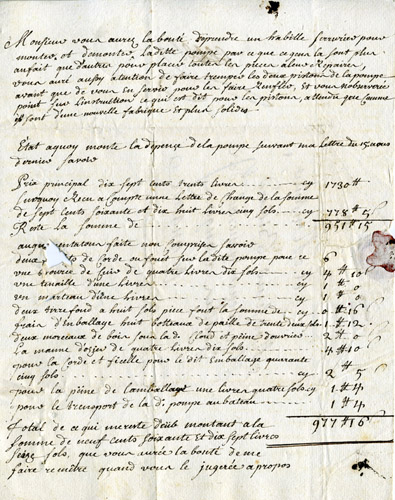 Monsieur vous aurez la bonté deprendre un habille serrurier pour
monter et demonter laditte pompe par ce que ce qu'en la sont plus
aufait que d'autres pour placer toutes les pieces aleur Repaires,
vous auré aussy atention de faire tremper les deux pistons de la pompe
avant que de vous en servir pour les faire Renfler, et vous nobserveré
point sur Linstruction ce qui est dit pour les pistons, attendu que
ils sont d'une nouvelle fabrique et plus solides.
Etat aquoy monte la depence de la pompe suivant ma lettre du 15
dernier savoir
Prix principal dix sept cents trente livres cy 1730 #
Surquoy Recu a compte une Lettre de change de la somme
de sept cents soixante et dix huit livres cinq sols cy 778 # 5
Reste la somme de 951 # 15
augmentation faite non comprises savoir
deux de corde ou fouet sur la dite pompe pour ce 6
une de cuir de quatre livres dix sols cy 4 # 10
une tenaille d'une livre cy 1 # 0
un marteau d'une livre cy 1 # 0
deux tirefond a huit sols piece font la somme de 0 # 16
frais d'Emballage huit botteaux de paille de trente deux sols 1 # 12
deux morceaux de bois sous la de fond et peine d'ouvrier 2 # 0
La manne d'ozier de quatre livres dix sols 4 # 10
pour la corde et ficelle pour le dit Emballage quarante
cinq sols cy 2 # 5
pour la peine de lamballage une livres quatre sols cy 1 # 4
pour le transport de la di pompe au bateau 1 # 4
Total de ce qui me reste deub montant a la 977 # 16
somme de neuf cents soixante et dix sept livres
seize sols, que vous aurez la bonté de me
faire remettre quand vous le jugerez apropos